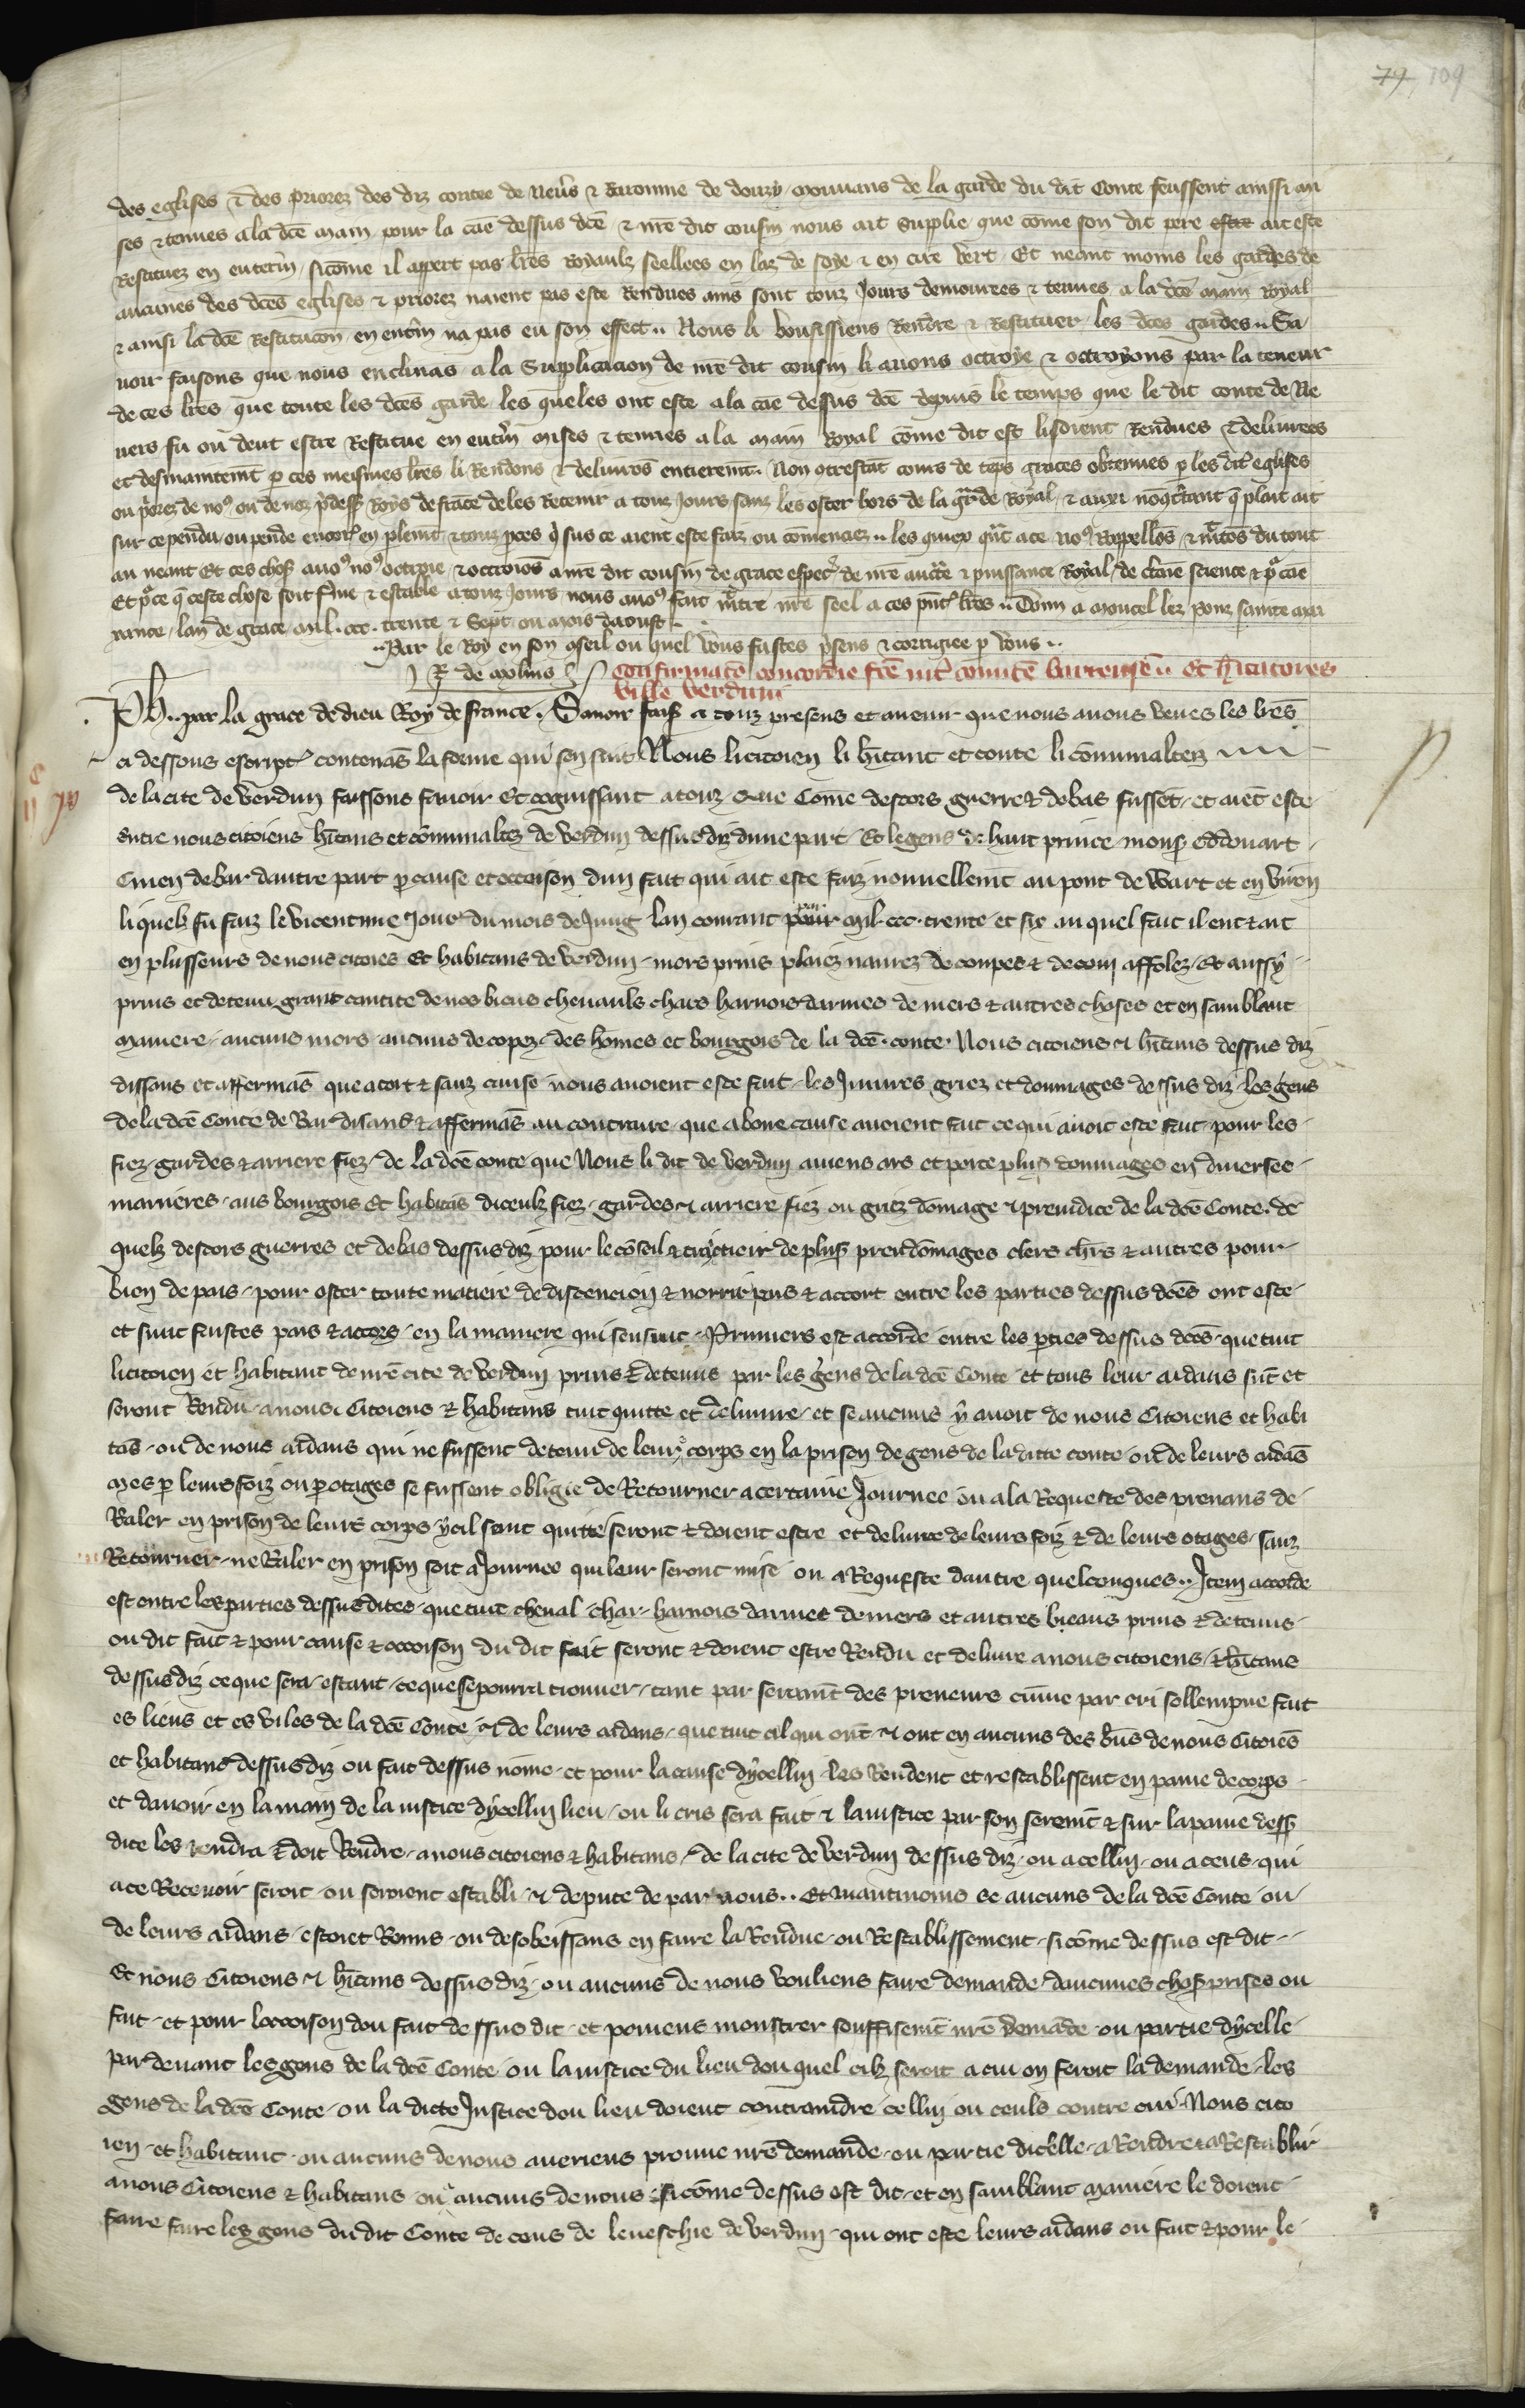 79, 109
des eglises & des priorez des diz contee de Neuers & baronnie de donzy mouuans de la garde du dit Conte feussent ainssi mi
ses & tenues a la dce main pour la cae dessus dce & nre dit cousin nous ait supplie que come son dit pere ait este
Restituez en enterin sicome il appert par lres Royaulz seellees en laz de soye & en cire vert Et neant moins les gardes de
aucunes des dces eglises & priorez naient pas este Rendues ains sont touz Jours demourees & tenues a la dce main Royal
& ainsi la dce Restitucon en enterin na pas eu son effect .. Nous li vousissiens Rendre & Restituer les dces gardes .. Sa
uoir faisons que nous enclinas a la Supplicacion de nre dit cousin li auons octroye & octroyons par la teneur
de ces lres que toute les dces garde les queles ont este a la cae dessus dce depuis le temps que le dit conte de Ne
uers fu ou deut estre Restitue en enterin mises & tenues a la main Royal come dit est li soient Rendues & deliurees
et des maintent p ces meismes lres li Rendons & deliuros entieremt. Non otrestat cours de teps graces obtenues p les dit eglises
ou priorez de nos ou de noz pdess Roys de frace de les Retenir a touz Jours sanz les oster hors de la garde Royal & auxi nocstant q plait ait
sur ce pendu ou pende encor en plemt & touz pces q sus ce aient este faiz ou comenciez .. les quiex qnt a ce nos Rappellos & mtos du tout
au neant Et ces choses auos nos octroie & octroios a nre dit cousin de grace especl de nre aucte & puissance Royal de ctaine science & p cae
Et p ce q ceste chose soit ferme & estable a touz Jours nous auos fait mttre nre seel a ces pnt lres .. Donn a moncel lez pons sainte max
xance lan de grace mil. ccc. trente & Sept ou mois daoust .
.. Par le Roy en son conseil ou quel vous fustes psens & corrigiee p vous ..
R. de molins Confirmatio concordie fce int comite barrense .. Et hitatores
ville verduni
Ph. par la grace de dieu Roy de france . Sauoir fais a touz presens et auenir que nous auons veues les lres
ci dessous escript contenas la forme qui sen suit Nous li citoien li hitant et toute li communaltez
de la cite de Verdun faissons sauoir Et cognissant a touz Que Come descors guerre & debas fusset et aiet este
entre nous citoiens hitans et communaltez de verdun dessus diz dune part Et le gens de haut prince mons Eddouart
Cuen de bar dautre part p cause et occoison dun fait qui ait este faiz nouuellemt au pont de Wart et en viron
li quelz fu faiz le vicentime Jour du mois de Jung lan courant par mil. ccc. trente et six au quel fait il eut & ait
en plusseurs de nous citoies Et habitans de verdun mors prins plaiez naurez decoupes & de com affolez Et aussy
prins et detenu grant cantite de nos biens cheuauls chars harnois darmes deniers & autres choses et en samblant
maniere aucuns mors aucuns decopez des homes et bourgois de la dce conte. Nous citoiens & hitans dessus diz
dissans et affermas que a tort & sanz cause nous auoient este fait les Iniures griez et dommages dessus diz les gens
de la dce Conte de Bar disans & affermas au contraire que a bone cause auoient fait ce qui auoit este fait pour les
fiez gardes & arriere fiez de la dce conte que Nous li dit de verdun auiens ars et porte plus dommages en diuerses
manieres aus bourgois Et habitas diceulz fiez gardes & arriere fiez ou griez domage & preiudice de la dce Conte. de
quelz descors guerres et debas dessus diz pour le coseil & traictieir de plus preudomages clers chrs & autres pour
bien de pais pour oster toute matiere de discencion & norrir pais & accort entre les parties dessus dces ont este
et sunt faistes pais & accors en la maniere qui sensuit Primiers est accorde entre les pties dessus dces que tuit
li citoien et habitant de nre cite de verdun prins & detenus par les gens de la dce Conte et tous leur aidans sut et
seront Rendu a nous Citoiens & habitans tuit quitte et deliure et se aucuns y auoit de nous Citoiens et habi
tas ou de nous aidans qui ne fussent detenu de leurs corps en la prison de gens de la ditte conte ou de leurs aidas
mes p leurs foiz ou p otages se fussent obligie de Retourner a certaine Journee ou a la Requeste des prenans de
Raler en prison de leurs corps ycil sont quitte seront & doient estre et deliure de leurs foiz & de leurs otages sanz
Retourner ne Raler en prison soit a Journee qui leur seront mise ou a Requeste dautre quelconques .. Item accorde
est entre les parties dessus dites que tuit cheual char harnois darmes deniers et autres bieans prins & detenus
ou dit fait & pour cause & occoison du dit fait seront & doient estre Rendu et deliure a nous citoiens & hitans
dessus diz ce que sera estant ce que se pourra trouuer tant par seremt des preneurs come par cri sollempne fait
es lieus et es viles de la dce Conte & de leurs aidans que tuit cil qui ont & ont eu aucuns des bns de nous Citoies
et habitans dessus diz ou fait dessus nome et pour la cause dycellui les Rendent et restablissent en paine de corps
et dauoir en la main de la iustice dycellui lieu ou li cris sera fait & la iustice par son seremt & sur la paine dess
dite les rendra & doit Rendre a nous citoiens & habitans de la cite de verdun dessus diz ou a cellui ou a ceus qui
a ce Receuoir seroit ou seroient establi & depute de par nous .. Et maintmoins se aucuns de la dce Conte ou
de leurs aidans estoiet Remis ou desobeissans en faire la Rendue ou Restablissement sicome dessus est dit
Et nous Citoiens & hitans dessus diz ou aucuns de nous vouliens faire demande daucunes choses prises ou
fait et pour loccoison dou fait dessus dit et poiiens monstrer souffisemt nre demade ou partie dycelle
par deuant les gens de la dce Conte ou la iustice du lieu dou quel cilz seroit a cui on feroit la demande les
gens de la dce Conte ou la dicte Justice dou lieu doient contraindre icellui ou ceuls contre cui Nous cito
ien et habitant ou aucuns de nous aueriens prouue nre demande ou partie dicelle a Rendre & a Restablir
a nous Citoiens & habitans ou aucuns de nous sicome dessus est dit et en samblant maniere le doient
faire faire les gens du dit Conte de ceus de leueschie de verdun qui ont este leurs aidans ou fait & pour le